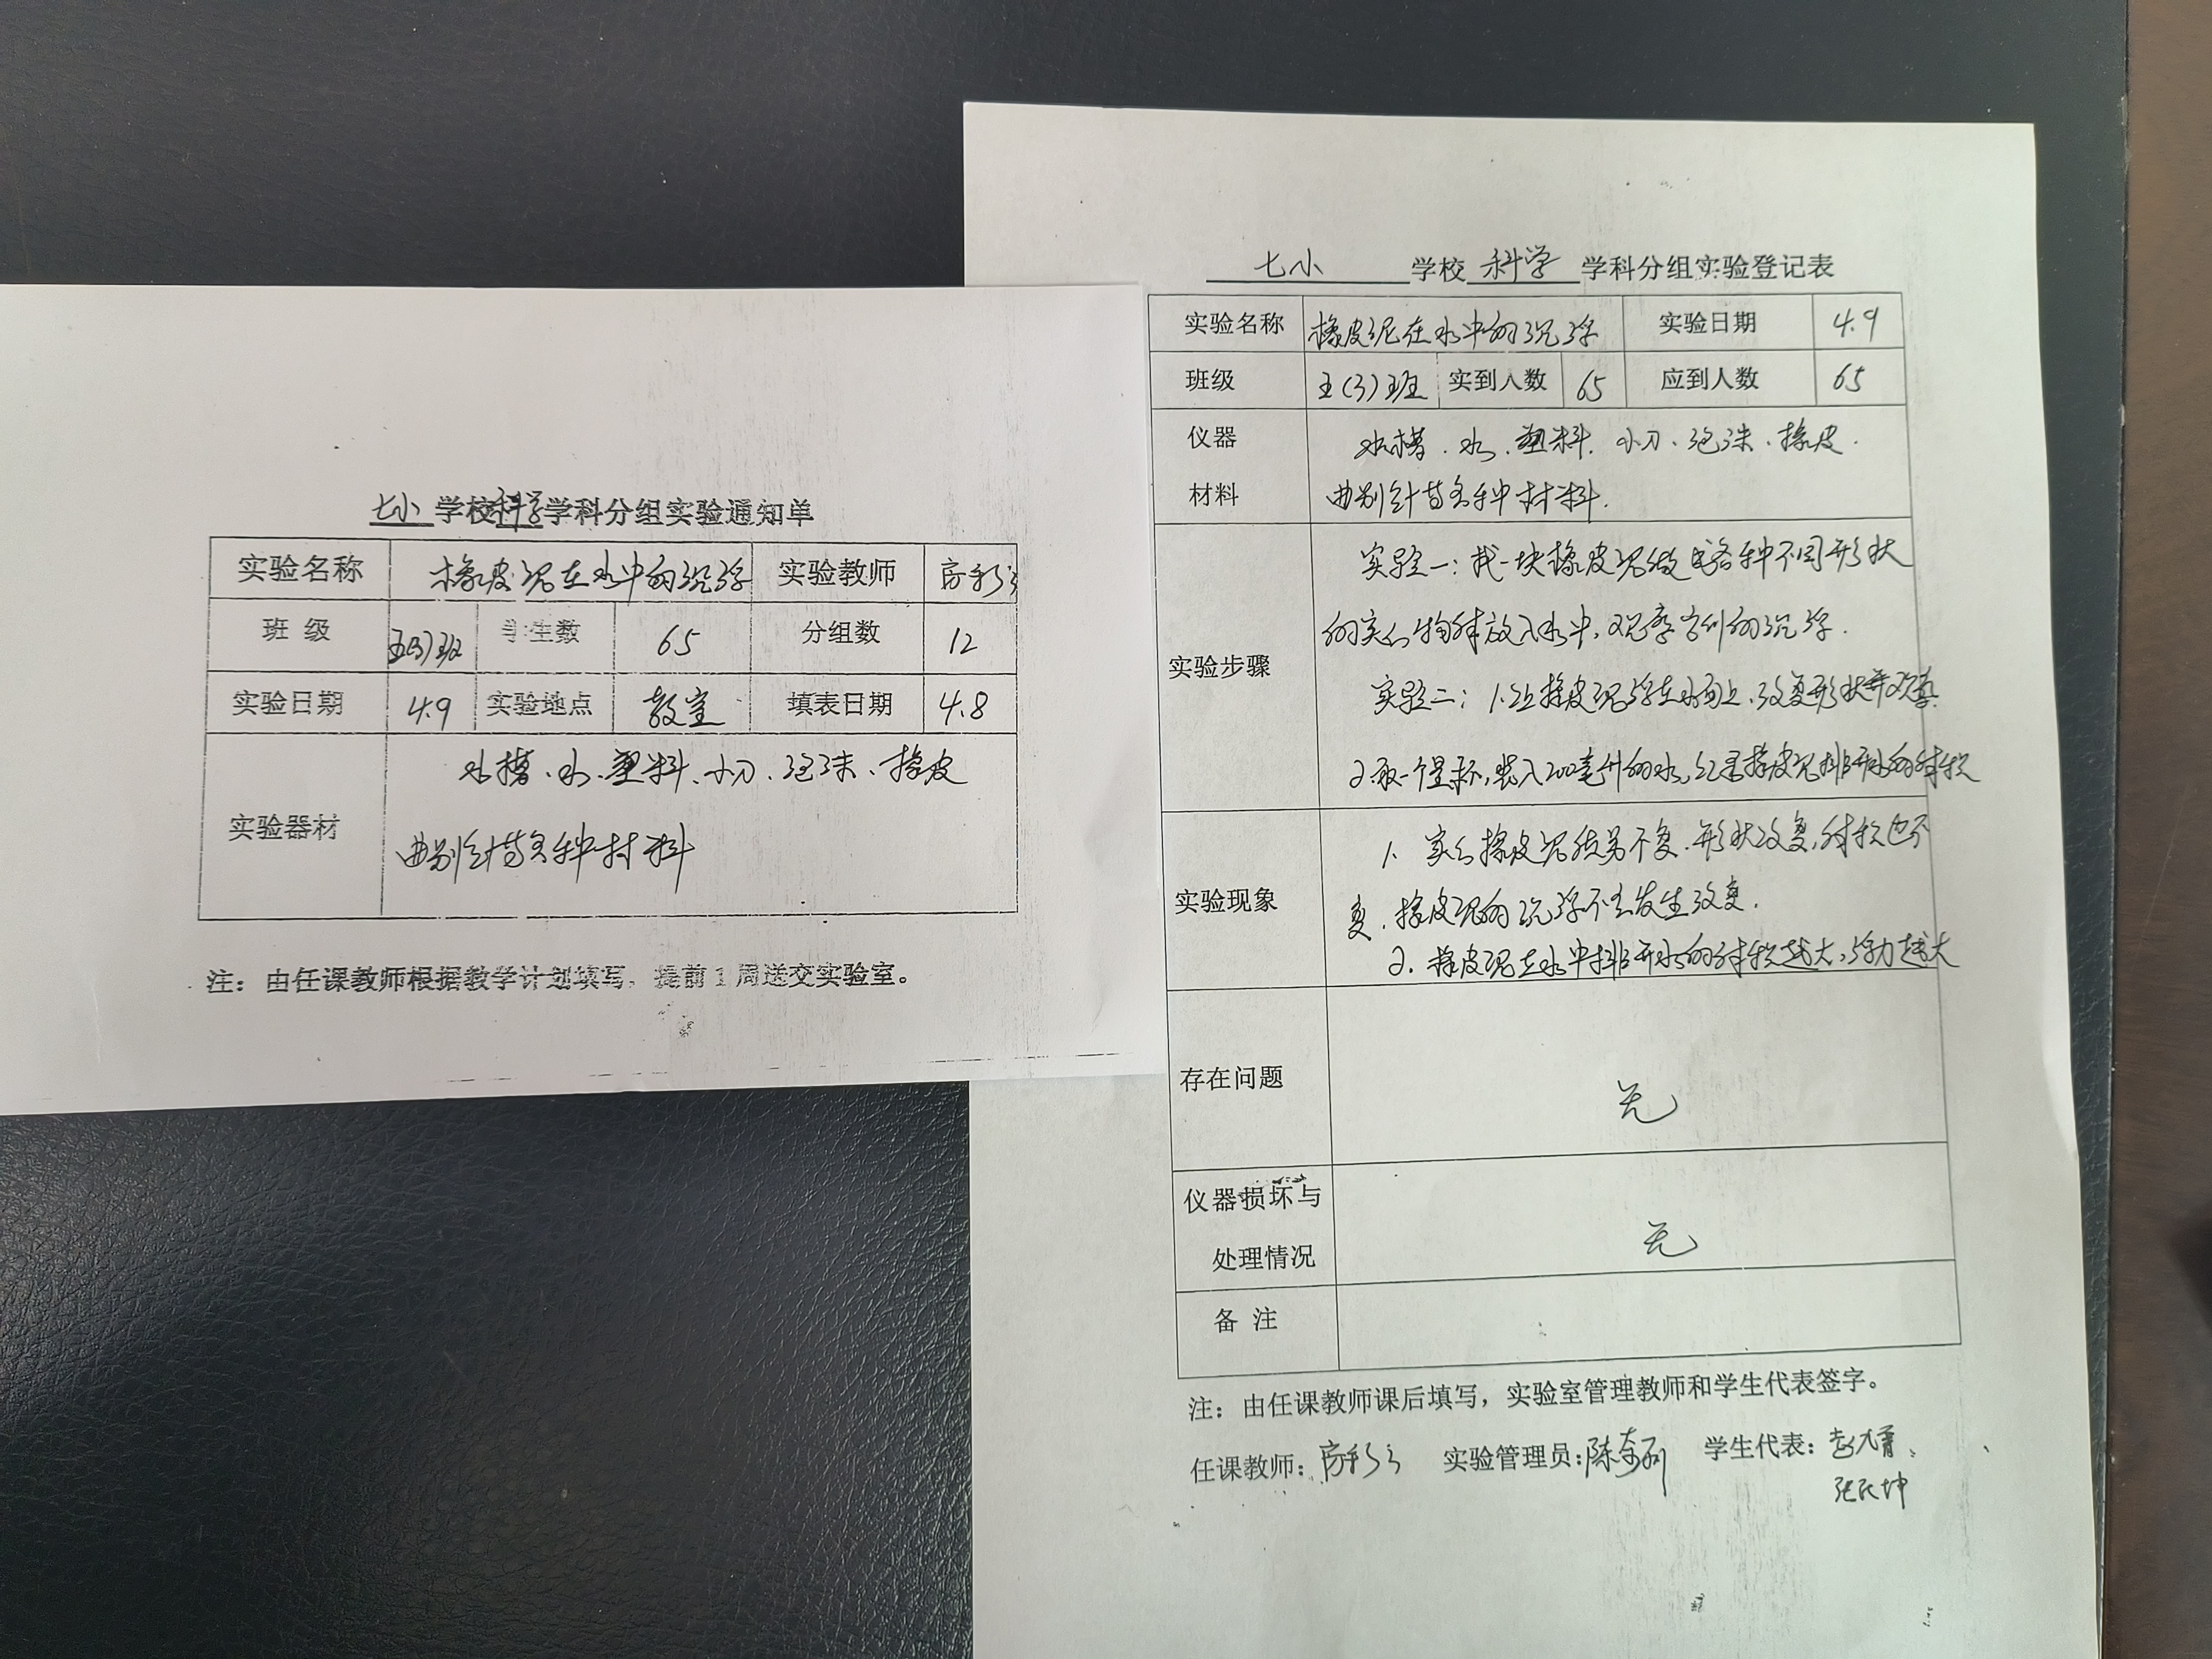 七小 学校 科学 学科分组实验通知单
实验名称 橡皮泥在水中的沉浮 实验教师
班 级 五(3)班 学生数 65 分组数 12
实验日期 4.9 实验地点 教室 填表日期 4.8
水槽、水、塑料、小刀、泡沫、橡皮
实验器材
曲别针等各种材料
注：由任课教师根据教学计划填写，提前1周送交实验室。
七小 学校 科学 学科分组实验登记表
实验名称 橡皮泥在水中的沉浮 实验日期 4.9
班级 五(3)班 实到人数 65 应到人数 65
仪器 水槽、水、塑料、小刀、泡沫、橡皮、
材料 曲别针等各种材料.
实验一：找一块橡皮泥做成各种不同形状
的实心物体放入水中，观察它们的沉浮.
实验步骤
实验二：1.让橡皮泥浮在水面上，改变形状并观察.
2.取一个量杯，装入200毫升的水，记录橡皮泥排开水的体积
1. 实心橡皮泥质量不变，形状改变，体积也不
实验现象
变，橡皮泥的沉浮不会发生改变.
2. 橡皮泥在水中排开水的体积越大，浮力越大
存在问题 无
仪器损坏与
处理情况 无
备 注
注：由任课教师课后填写，实验室管理教师和学生代表签字。
任课教师： 实验管理员： 学生代表：